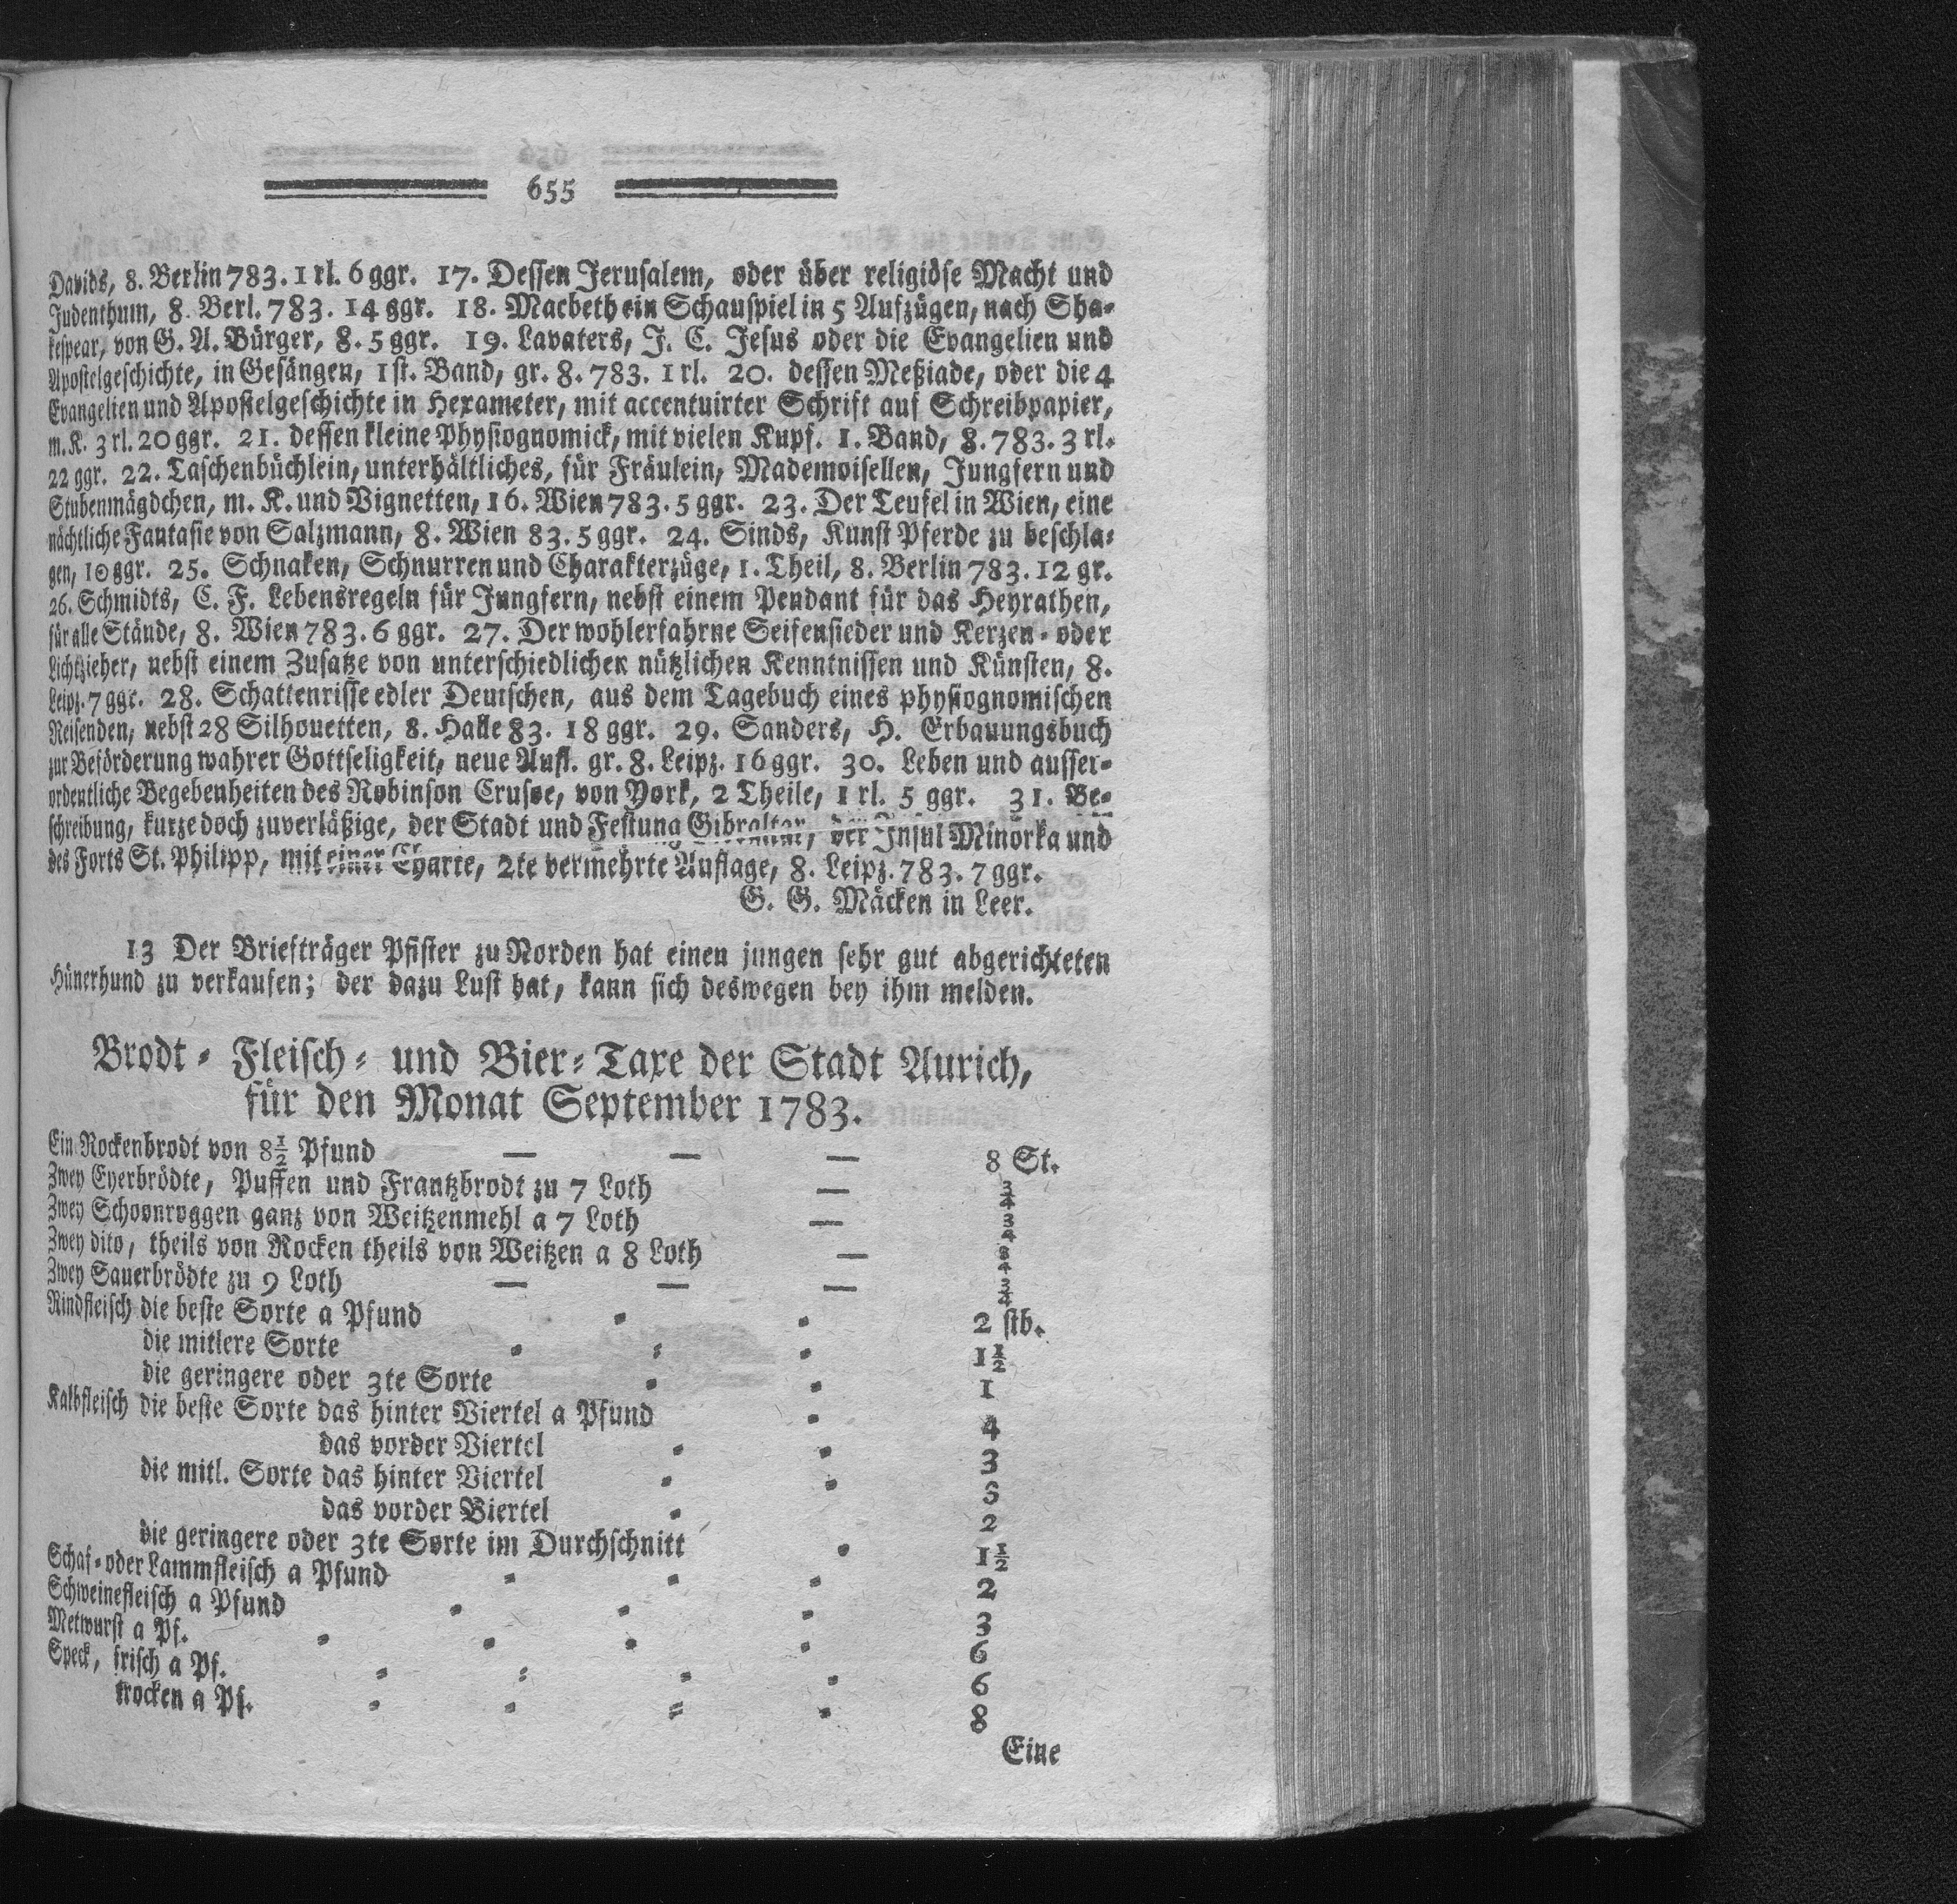 655
Davids, 8. Berlin 783. 1 rl. 6 ggr. 17. Dessen Jerusalem, oder über religiöse Macht und
Judenthum, 8. Berl. 783. 14 ggr. 18. Macbeth ein Schauspiel in 5 Aufzügen, nach Sha-
kespear, von G. A. Bürger, 8. 5 ggr. 19. Lavaters, J. C. Jesus oder die Evangelien und
Apostelgeschichte, in Gesängen, 1st. Band, gr. 8. 783. 1 rl. 20. dessen Meßiade, oder die 4
Evangelien und Apostelgeschichte in Hexameter, mit accentuirter Schrift auf Schreibpapier,
m. K. 3 rl. 20 ggr. 21. dessen kleine Physiognomick, mit vielen Kupf. 1. Band, 8. 783. 3 rl.
22 ggr. 22. Taschenbüchlein, unterhältliches, für Fräulein, Mademoisellen, Jungfern und
Stubenmägdchen, m. K. und Vignetten, 16. Wien 783. 5 ggr. 23. Der Teufel in Wien, eine
nächtliche Fantasie von Salzmann, 8. Wien 83. 5 ggr. 24. Sinds, Kunst Pferde zu beschla-
gen, 10 ggr. 25. Schnaken, Schnurren und Charakterzüge, 1. Theil, 8. Berlin 783. 12 gr.
26. Schmidts, C. F. Lebensregeln für Jungfern, nebst einem Pendant für das Heyrathen,
für alle Stände, 8. Wien 783. 6 ggr. 27. Der wohlerfahrne Seifensieder und Kerzen- oder
Lichtzieher, nebst einem Zusatze von unterschiedlichen nützlichen Kenntnissen und Künsten, 8.
Leipz. 7 ggr. 28. Schattenrisse edler Deutschen, aus dem Tagebuch eines physiognomischen
Reisenden, nebst 28 Silhouetten, 8. Halle 83. 18 ggr. 29. Sanders, H. Erbauungsbuch
zur Beförderung wahrer Gottseligkeit, neue Aufl. gr. 8. Leipz. 16 ggr. 30. Leben und ausser-
ordentliche Begebenheiten des Robinson Crusoe, von York, 2 Theile, 1 rl. 5 ggr. 31. Be-
schreibung, kurze doch zuverläßige, der Stadt und Festung Gibraltar, der Insul Minorka und
des Forts St. Philipp, mit einer Charte, 2te vermehrte Auflage, 8. Leipz. 783. 7 ggr.
G. G. Mäcken in Leer.
13 Der Briefträger Pfister zu Norden hat einen jungen sehr gut abgerichteten
Hünerhund zu verkaufen; der dazu Lust hat, kann sich deswegen bey ihm melden.
Brodt- Fleisch- und Bier-Taxe der Stadt Aurich,
für den Monat September 1783.
Ein Rockenbrodt von 8½ Pfund — — — 8 St.
Zwey Eyerbrödte, Puffen und Frantzbrodt zu 7 Loth — ¾
Zwey Schoonroggen ganz von Weitzenmehl a 7 Loth — ¾
Zwey dito, theils von Rocken theils von Weitzen a 8 Loth — ¾
Zwey Sauerbrödte zu 9 Loth — — — ¾
Rindfleisch die beste Sorte a Pfund 2 stb.
die mitlere Sorte 1½
die geringere oder 3te Sorte 1
Kalbfleisch die beste Sorte das hinter Viertel a Pfund 4
das vorder Viertel 3
die mitl. Sorte das hinter Viertel 3
das vorder Viertel 2
die geringere oder 3te Sorte im Durchschnitt 1½
Schaf- oder Lammfleisch a Pfund 2
Schweinefleisch a Pfund 3
Metwurst a Pf. 6
Speck, frisch a Pf. 6
trocken a Pf. 8
Eine